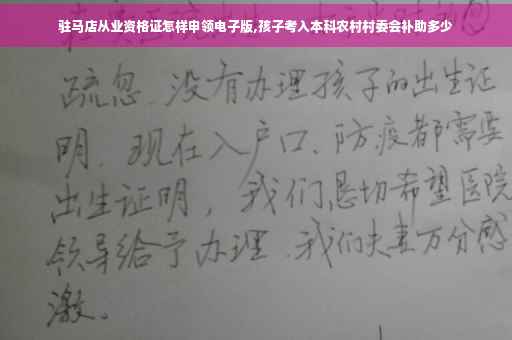 驻马店从业资格证怎样申领电子版,孩子考入本科农村村委会补助多少
疏忽.没有办理孩子的出生证
明.现在入户口、防疫都需要
出生证明，我们恳切希望医院
领导给予办理.我们夫妻万分感
激。